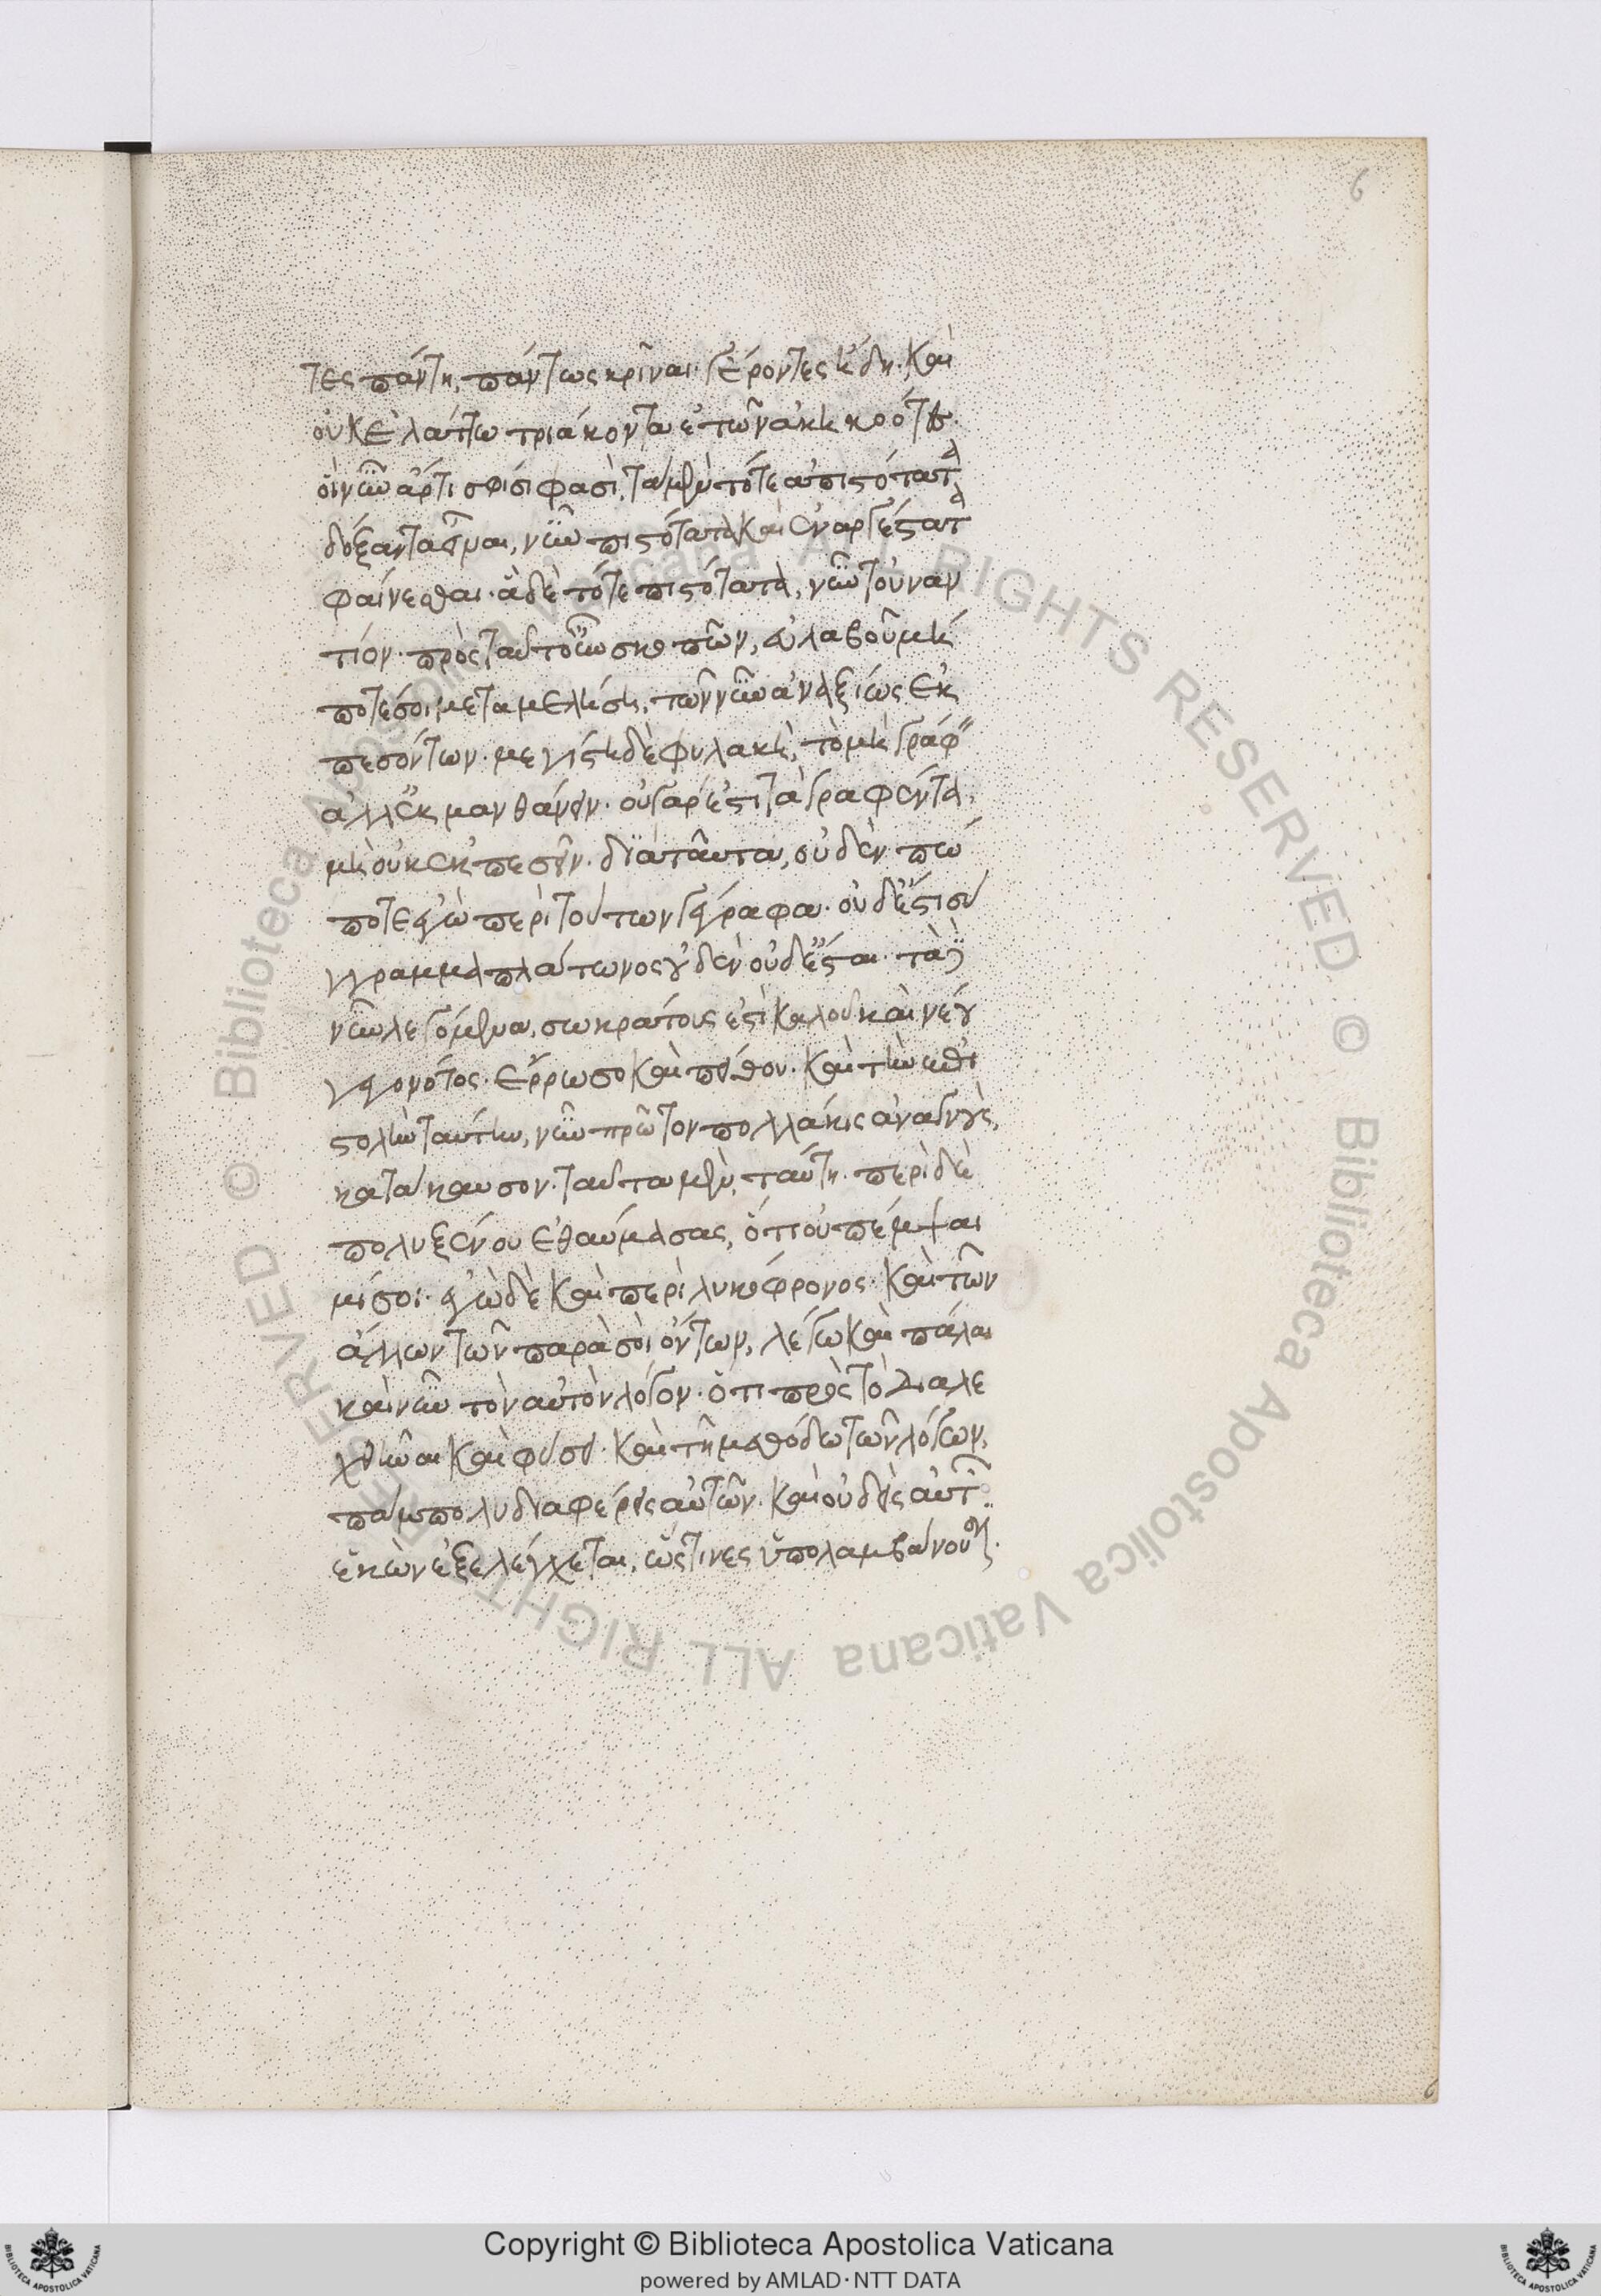 6
τες πάντη, πάντως κρῖναι· γέροντες ἤδη. καὶ
οὐκ ἐλάττω τριάκοντα ἐτῶν ἀκηκοότες.
οἳ νῦν ἄρτι σφίσι φασὶ, τὰ μὲν τότε ἀπιστότατα
δόξαντα εἶναι, νῦν πιστότατα καὶ ἐναργέστατα
φαίνεσθαι. ἃ δὲ τότε πιστότατα, νῦν τοὐναν
τίον. πρὸς ταῦτ' οὖν σκοπῶν, εὐλαβοῦ μή
ποτέ σοι μεταμελήσῃ, τῶν νῦν ἀναξίως ἐκ
πεσόντων. μεγίστη δὲ φυλακὴ, τὸ μὴ γράφειν
ἀλλ' ἐκμανθάνειν. οὐ γάρ ἐστι τὰ γραφέντα,
μὴ οὐκ ἐκπεσεῖν. διὰ ταῦτα, οὐδὲν πώ
ποτε ἐγὼ περὶ τούτων γέγραφα. οὐδ' ἔστι σύ
γγραμμα πλάτωνος οὐδὲν οὐδ' ἔσται. τὰ δὲ
νῦν λεγόμενα, σωκράτους ἐστὶ καλοῦ καὶ νέου
γεγονότος. ἔρρωσο καὶ πείθου. καὶ τὴν ἐπι
στολὴν ταύτην, νῦν πρῶτον πολλάκις ἀναγνοὺς,
κατάκαυσον. ταῦτα μὲν, ταύτῃ. περὶ δὲ
πολυξένου ἐθαύμασας, ὅτι οὐ πέμψαι
μί σοι. ἐγὼ δὲ καὶ περὶ λυκόφρονος. καὶ τῶν
ἄλλων τῶν παρὰ σοὶ ὄντων, λέγω καὶ πάλαι
καὶ νῦν τὸν αὐτὸν λόγον. ὅτι πρὸς τὸ διαλε
χθῆναι καὶ φύσει. καὶ τῇ μεθόδῳ τῶν λόγων,
πάμπολυ διαφέρεις αὐτῶν. καὶ οὐδεὶς αὐτῶν
ἑκὼν ἐξελέγχεται, ὥς τινες ὑπολαμβάνουσιν.
6
Biblioteca Apostolica Vaticana ALL RIGHTS RESERVED ©
Biblioteca Apostolica Vaticana ALL RIGHTS RESERVED ©
Copyright © Biblioteca Apostolica Vaticana
powered by AMLAD·NTT DATA